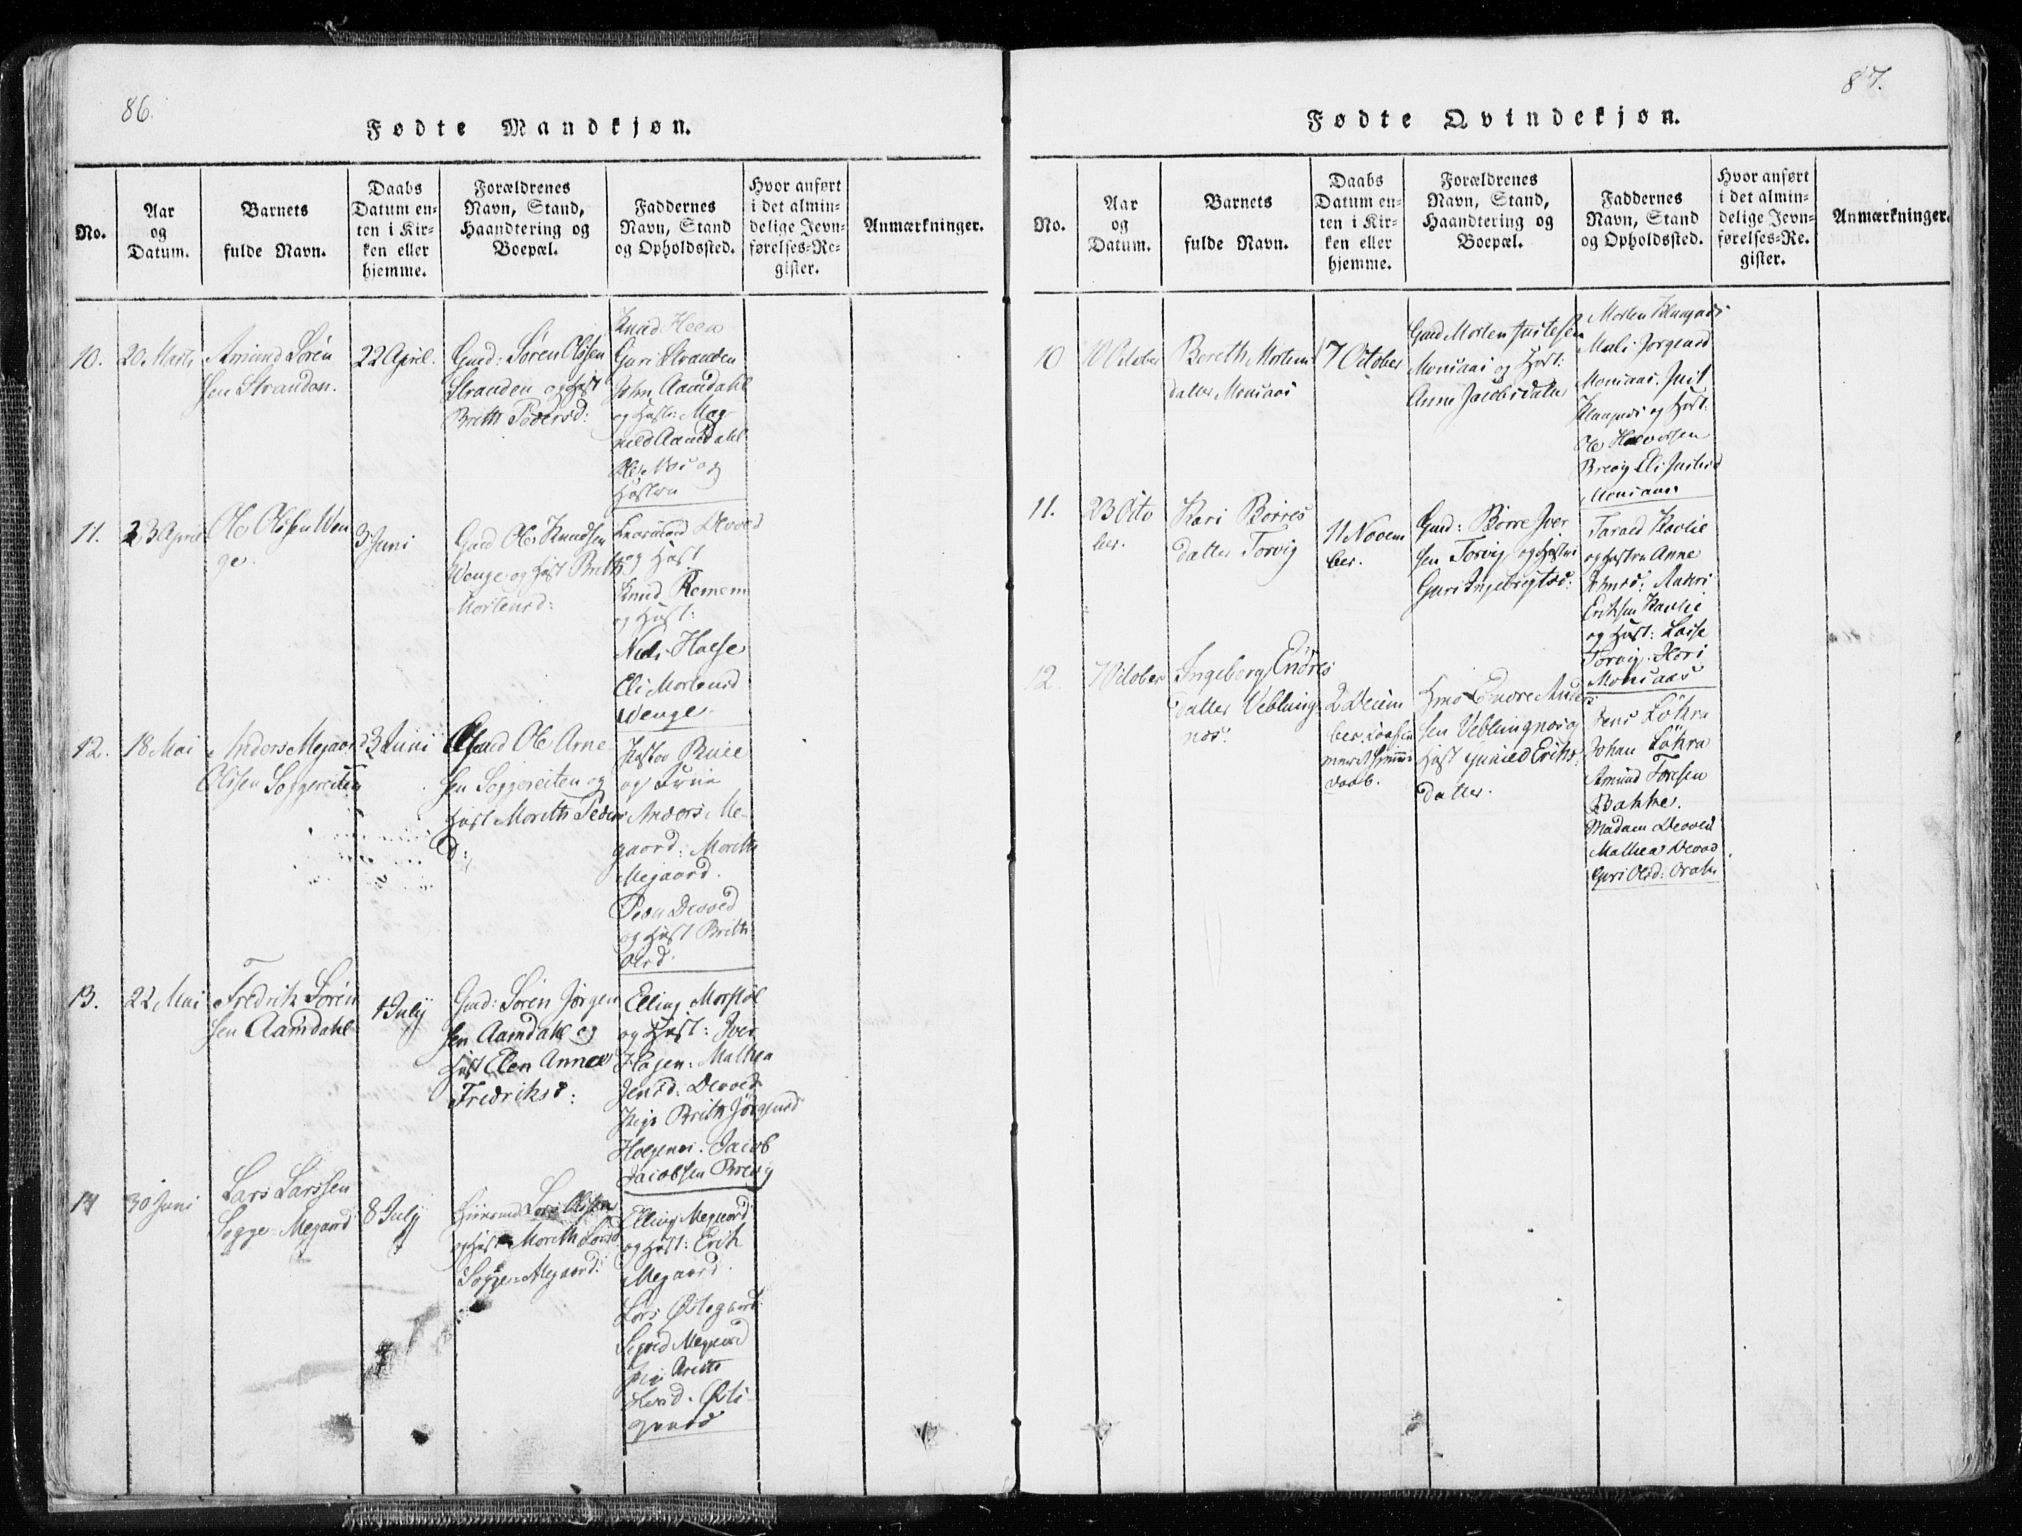 86.
Fødte Mandkjøn.
No.
Aar
og
Datum.
Barnets
fulde Navn.
Daabs
Datum en-
ten i Kir-
ken eller
hjemme.
Forældrenes
Navn, Stand,
Haandtering og
Boepæl.
Faddernes
Navn, Stand
og Opholdssted.
Hvor anført
i det almin-
delige Jevn-
førelses-Re-
gister.
Anmærkninger.
10.
20 Marts
Amund Søren
sen Stranden.
22 April.
Gmd: Søren Olssen
Stranden og Hust
Brith Peders d:
Knud Heen
Guri Stranden
John Aamdahl
og Hustr: Mag-
nild Aamdahl
og
Hustru
11.
23 April
Ole Olssen Wen
ge.
3 Juni
Gmd Ole Knudsen
Wenge og Hust Brith
Mortensd:
Devold
og Hust
Knud Remem
og Hust:
Niels Hoese
Eli Mortensd
Wenge.
12.
18 Mai
Anders Megaard
Olssen Soggereiten
3 Juni
Gmd Ole Arne
sen Soggereiten og
Hust Marith Peders
D:
og Frue
Anders Me-
gaard: Marith
Megaard.
Peder Devold
og Hust Brith
Olsd.
13.
22 Mai
Fredrik Søren
sen Aamdahl
1 July
Gmd: Søren Jørgen
sen Aamdahl og
Hust Elen Anna
Fredriksd:
Elling Morstøl
og Hust: Iver
Hagen: Mathea
Jensd: Devold
Pige Brith Jørgensd
Jacob
Jacobsen Brevig
14
30 Juni
Lars Larssen
Sogge-Megaard
8 July
Huusmd Lars Olssen
og Hust Marith Larsd
Sogge-Megaard.
Elling Megaard
og Hust: Erik
Megaard.
Lars Østigaard
Sigrid Megaard
Pige Brith
Larsd. Østi-
gaard
87.
Fødte Qvindekjøn.
No.
Aar
og
Datum.
Barnets
fulde Navn.
Daabs
Datum en-
ten i Kir-
ken eller
hjemme.
Forældrenes
Navn, Stand,
Haandtering og
Boepæl.
Faddernes
Navn, Stand
og Opholdssted.
Hvor anført
i det almin-
delige Jevn-
førelses-Re-
gister.
Anmærkninger.
10
October
Bereth Mortens
datter Monsaas
7 October
Gmd Morten Justesen
Monsaas og Hust:
Anne Jacobsdatter
Morten Klungnæs
Mali Jorgaard
Monsaas. Just
Klungnæs og Hust.
Ole Halvorsen
Brevig Eli Justesd
Monsaas
11.
23 Octo
ber.
Kari Børres
datter Torvig
11 Novem
ber.
Gmd: Børre Iver
sen Torvig og Hustru
Guri Ingebrigtsd:
Tarald Kavlie
og Hustru Anne
Johnsd: Anders
Eriksen Kavlie
og Hust: Lasse
Torvig. Kari
Monsaas
12.
October
Ingeborg Endres
datter Veblungs
næs.
2 Decem
ber
daab.
Hmd Endre Anders
sen Veblungnæs og
Hust Gunild Eriks
datter.
Jens Løkra
Johan Løkra
Amund Toresen
Bakke.
Madam Devold
Mathea Devold
Guri Olsd: